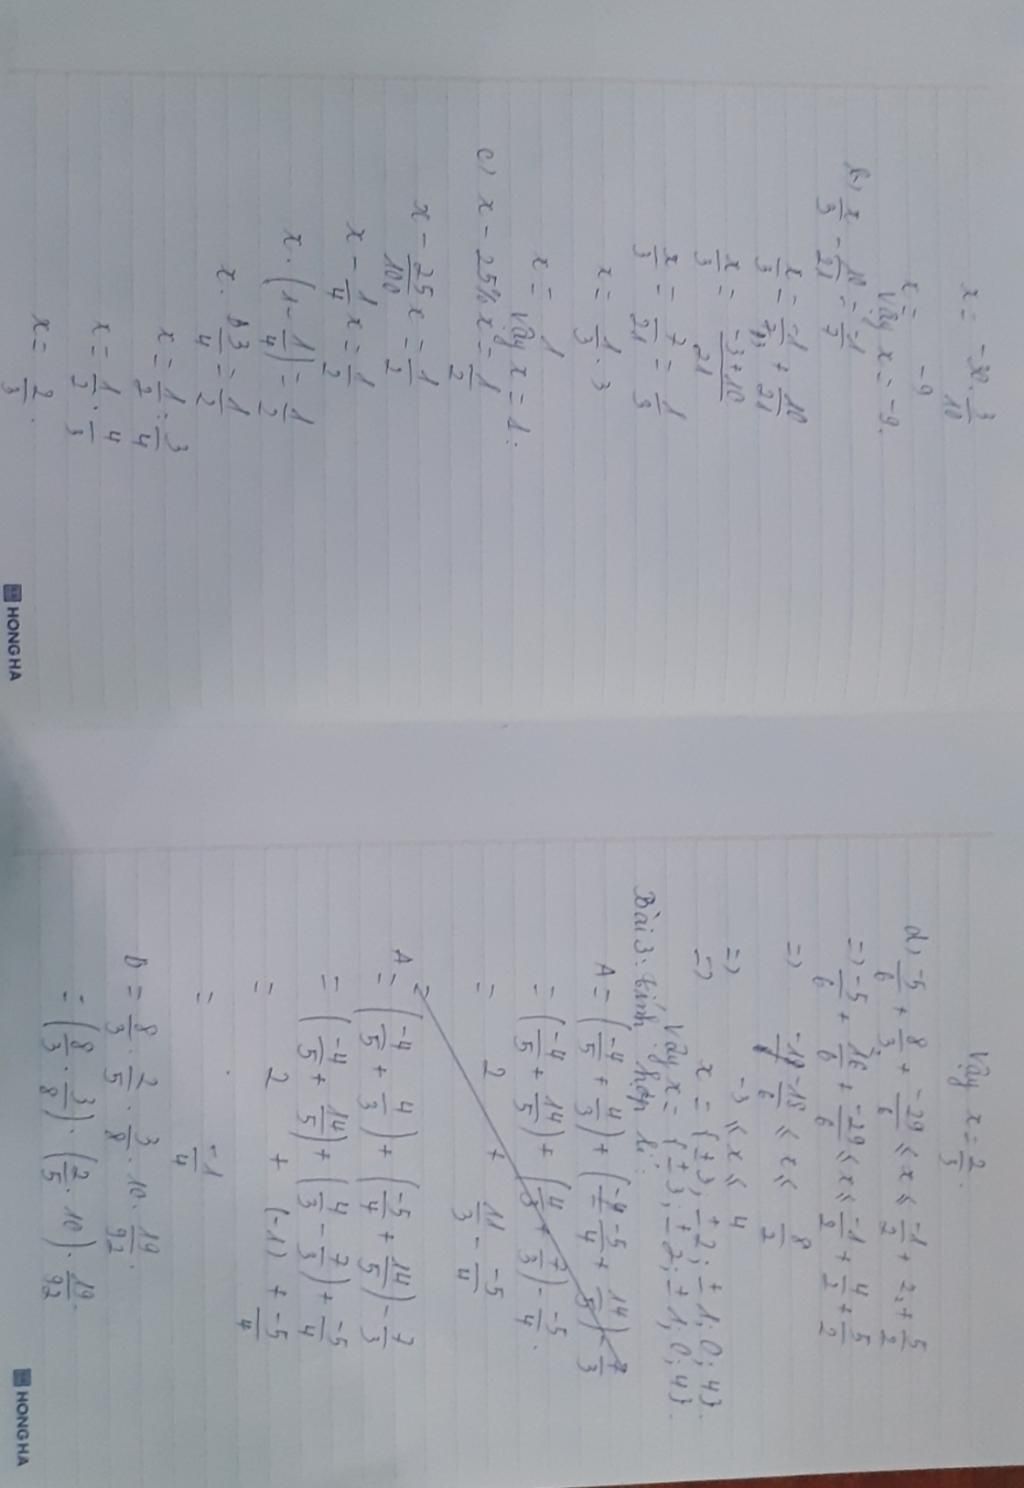 x = -30 . 3/10
x = -9
Vậy x = -9.
b) x/3 - 10/21 = -1/7
x/3 = -1/7 + 10/21
x/3 = -3+10/21
x/3 = 7/21 = 1/3
x = 1/3 . 3
x = 1
Vậy x = 1.
c) x - 25% x = 1/2
x - 25/100 x = 1/2
x - 1/4 x = 1/2
x . (1 - 1/4) = 1/2
x . 3/4 = 1/2
x = 1/2 : 3/4
x = 1/2 . 4/3
x = 2/3.
HONG HA
Vậy x = 2/3.
d) -5/6 + 8/3 + -29/6 ≤ x ≤ -1/2 + 2 + 5/2
=> -5/6 + 16/6 + -29/6 ≤ x ≤ -1/2 + 4/2 + 5/2
=> -18/6 ≤ x ≤ 8/2
=> -3 ≤ x ≤ 4
=> x = {±3; ±2; ±1; 0; 4}.
Vậy x = {±3; ±2; ±1; 0; 4}.
Bài 3: tính hợp lí:
A = (-4/5 + 4/3) + (-5/4 + 14/5) - 7/3
= (-4/5 + 14/5) + (4/3 + 7/3) - -5/4.
= 2 + 11/3 - -5/4
=
A = (-4/5 + 4/3) + (-5/4 + 14/5) - 7/3
= (-4/5 + 14/5) + (4/3 - 7/3) + -5/4
= 2 + (-1) + -5/4
= -1/4
B = 8/3 . 2/5 . 3/8 . 10 . 19/92.
= (8/3 . 3/8) . (2/5 . 10) . 19/92.
HONG HA